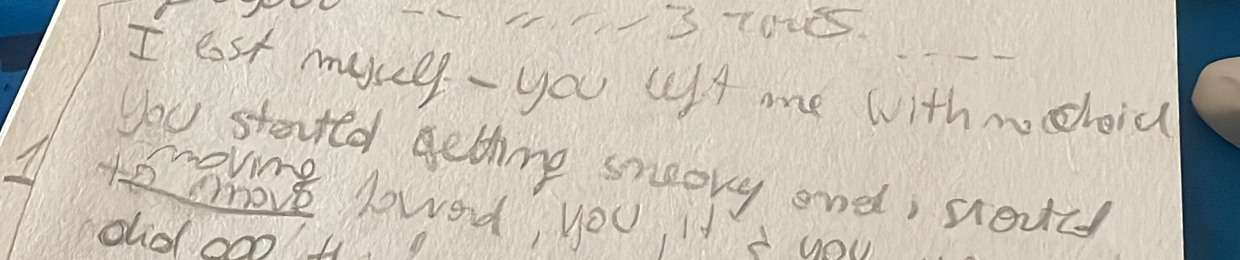 3
I lost myself - you left me with no choice
You started getting sneaky and, started
moving
to move toward, you, it's you
1
did